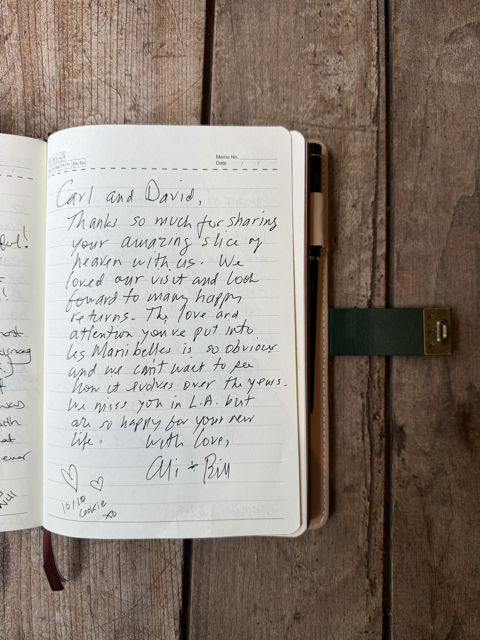 Memo No.
Date / /
Carl and David,
Thanks so much for sharing
your amazing slice of
heaven with us. We
loved our visit and look
foward to many happy
returns. The love and
attention you've put into
Les Marribelles is so obvious
and we can't wait to see
how it evolves over the years.
We miss you in L.A. but
are so happy for your new
life. With love,
Ali + Bill
10/10
cookie
xo
most
ever